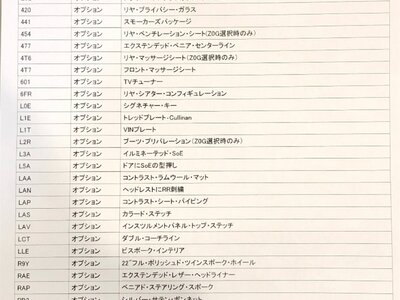 420 オプション リヤ・プライバシー・ガラス
441 オプション スモーカーズパッケージ
454 オプション リヤ・ベンチレーション・シート(Z0G選択時のみ)
477 オプション エクステンデッド・ベニア・センターライン
4T6 オプション リヤ・マッサージシート(Z0G選択時のみ)
4T7 オプション フロント・マッサージシート
601 オプション TVチューナー
6FR オプション リヤ・シアター・コンフィギュレーション
L0E オプション シグネチャー・キー
L1E オプション トレッドプレート-Cullinan
L1T オプション VINプレート
L2R オプション ブーツ・プリパレーション(Z0G選択時のみ)
L3A オプション イルミネーテッド・SoE
L5A オプション ドアにSoEの型押し
LAA オプション コントラスト・ラムウール・マット
LAN オプション ヘッドレストにRR刺繍
LAP オプション コントラスト・シート・パイピング
LAS オプション カラード・ステッチ
LAV オプション インスツルメントパネル・トップ・ステッチ
LCT オプション ダブル・コーチライン
LLE オプション ビスポーク・インテリア
R9Y オプション 22"フル・ポリッシュド・ツインスポーク・ホイール
RAE オプション エクステンデッド・レザー・ヘッドライナー
RAP オプション ベニアド・ステアリング・スポーク
オプション シルバー・サテン・ボンネット